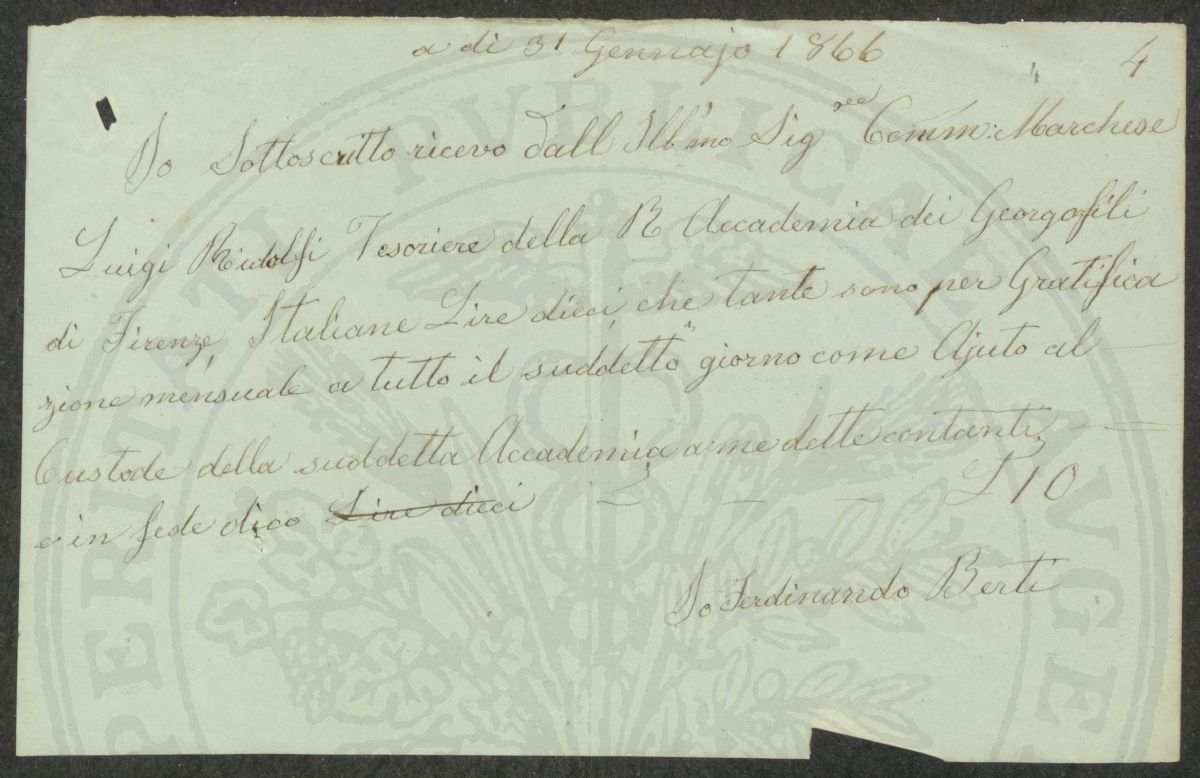 a dì 31 Gennajo 1866
4 4
Io Sottoscritto ricevo dall Ill'mo Sig.re Comm: Marchese
Luigi Ridolfi Tesoriere della R Accademia dei Georgofili
di Firenze, Italiane Lire dieci, che tante sono per Gratifica
zione mensuale a tutto il suddetto giorno come Ajuto al
Custode della suddetta Accademia a me dette contanti,
e in fede dico Lire dieci £ — — £ 10
Io Ferdinando Berti
PROSPERITATI PVBLICAE AVGENDAE